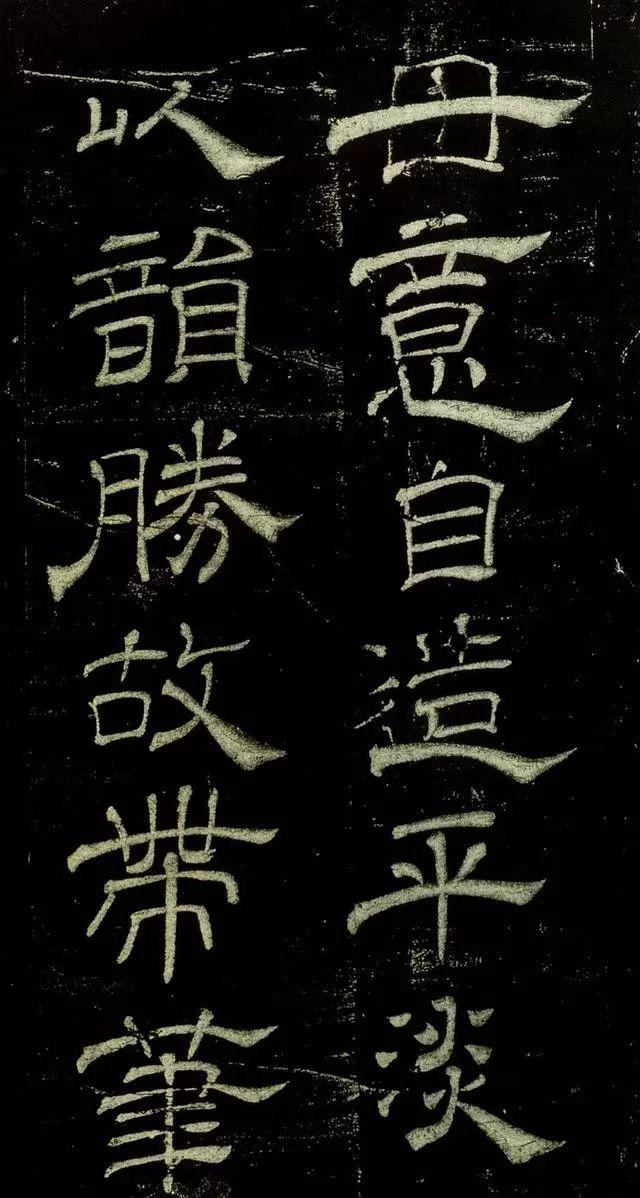 毋意自造平淡
以韻勝故帶筆